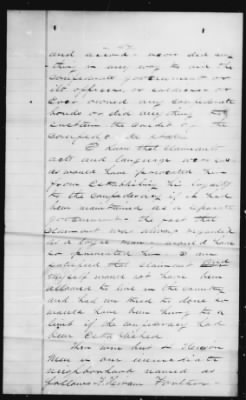 and accord - never did any
thing in any way to aid the
Confederate government or
its officers or soldiers or
Ever owned any confederate
bonds or did any thing to
sustain the credit of the
so-called
I know that Claimants
acts and language were
as would have prevented him
from Establishing his loyalty
to the Confederacy if it had
been maintained as a separate
government. The fact that
Claimant was always regarded
as a loyal man would have
so prevented him I am
satisfied that claimant
myself would not have been
allowed to live in the country
and had we tried to done so
would have been hung to a
limb if the confederacy had
been Established
There were but Union
Men in our immediate
neighborhood named as
follows